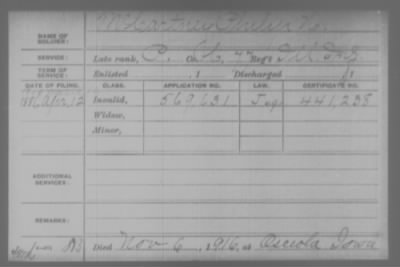 McCartney, Philip N.
NAME OF SOLDIER:
SERVICE: Late rank, P. Co. G, 47 Reg't Ill. Inf.
TERM OF SERVICE: Enlisted , 1 Discharged , 1
DATE OF FILING. CLASS. APPLICATION NO. LAW. CERTIFICATE NO.
Apr. 12 Invalid, 569,631 441,238
Widow,
Minor,
ADDITIONAL SERVICES:
REMARKS:
Died Nov 6, 1916, at Osceola Iowa